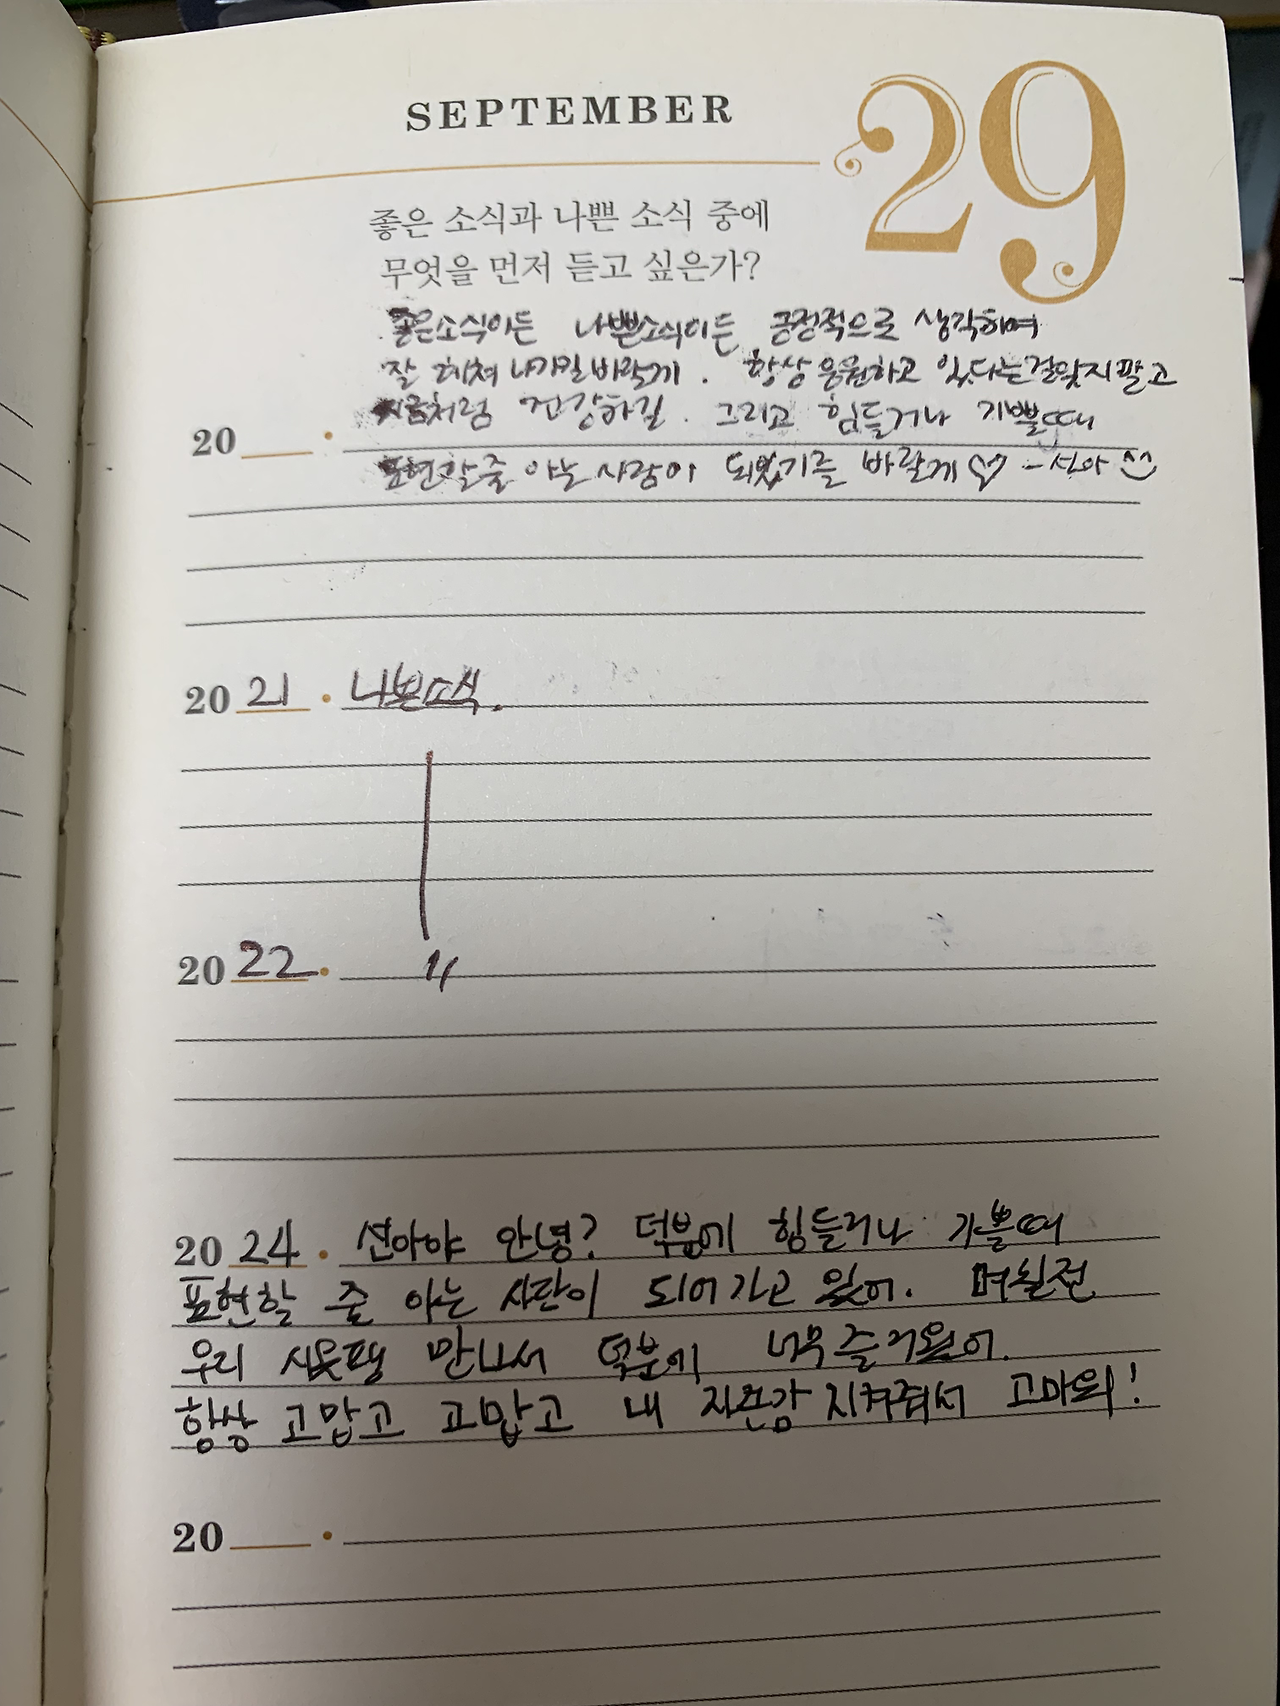 SEPTEMBER
29
좋은 소식과 나쁜 소식 중에
무엇을 먼저 듣고 싶은가?
좋은소식이든 나쁜소식이든 긍정적으로 생각하며
잘 헤쳐 나가길 바랄게. 항상 응원하고 있다는걸 잊지말고
지금처럼 건강하길. 그리고 힘들거나 기쁠때
20
표현할줄 아는 사람이 되었기를 바랄게♡ - 선아
20 21 · 나쁜소식.
20 22 · 〃
20 24 · 선아야 안녕? 덕분에 힘들거나 기쁠때
표현할 줄 아는 사람이 되어가고 있어. 며칠전
우리 만나서 덕분에 너무 즐거웠어.
항상 고맙고 고맙고 내 자존감 지켜줘서 고마워!
20